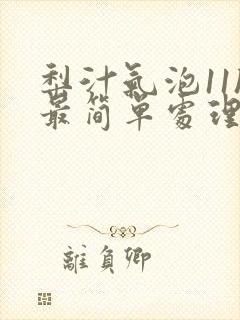 梨汁氣泡11
最简單處理
離負卿